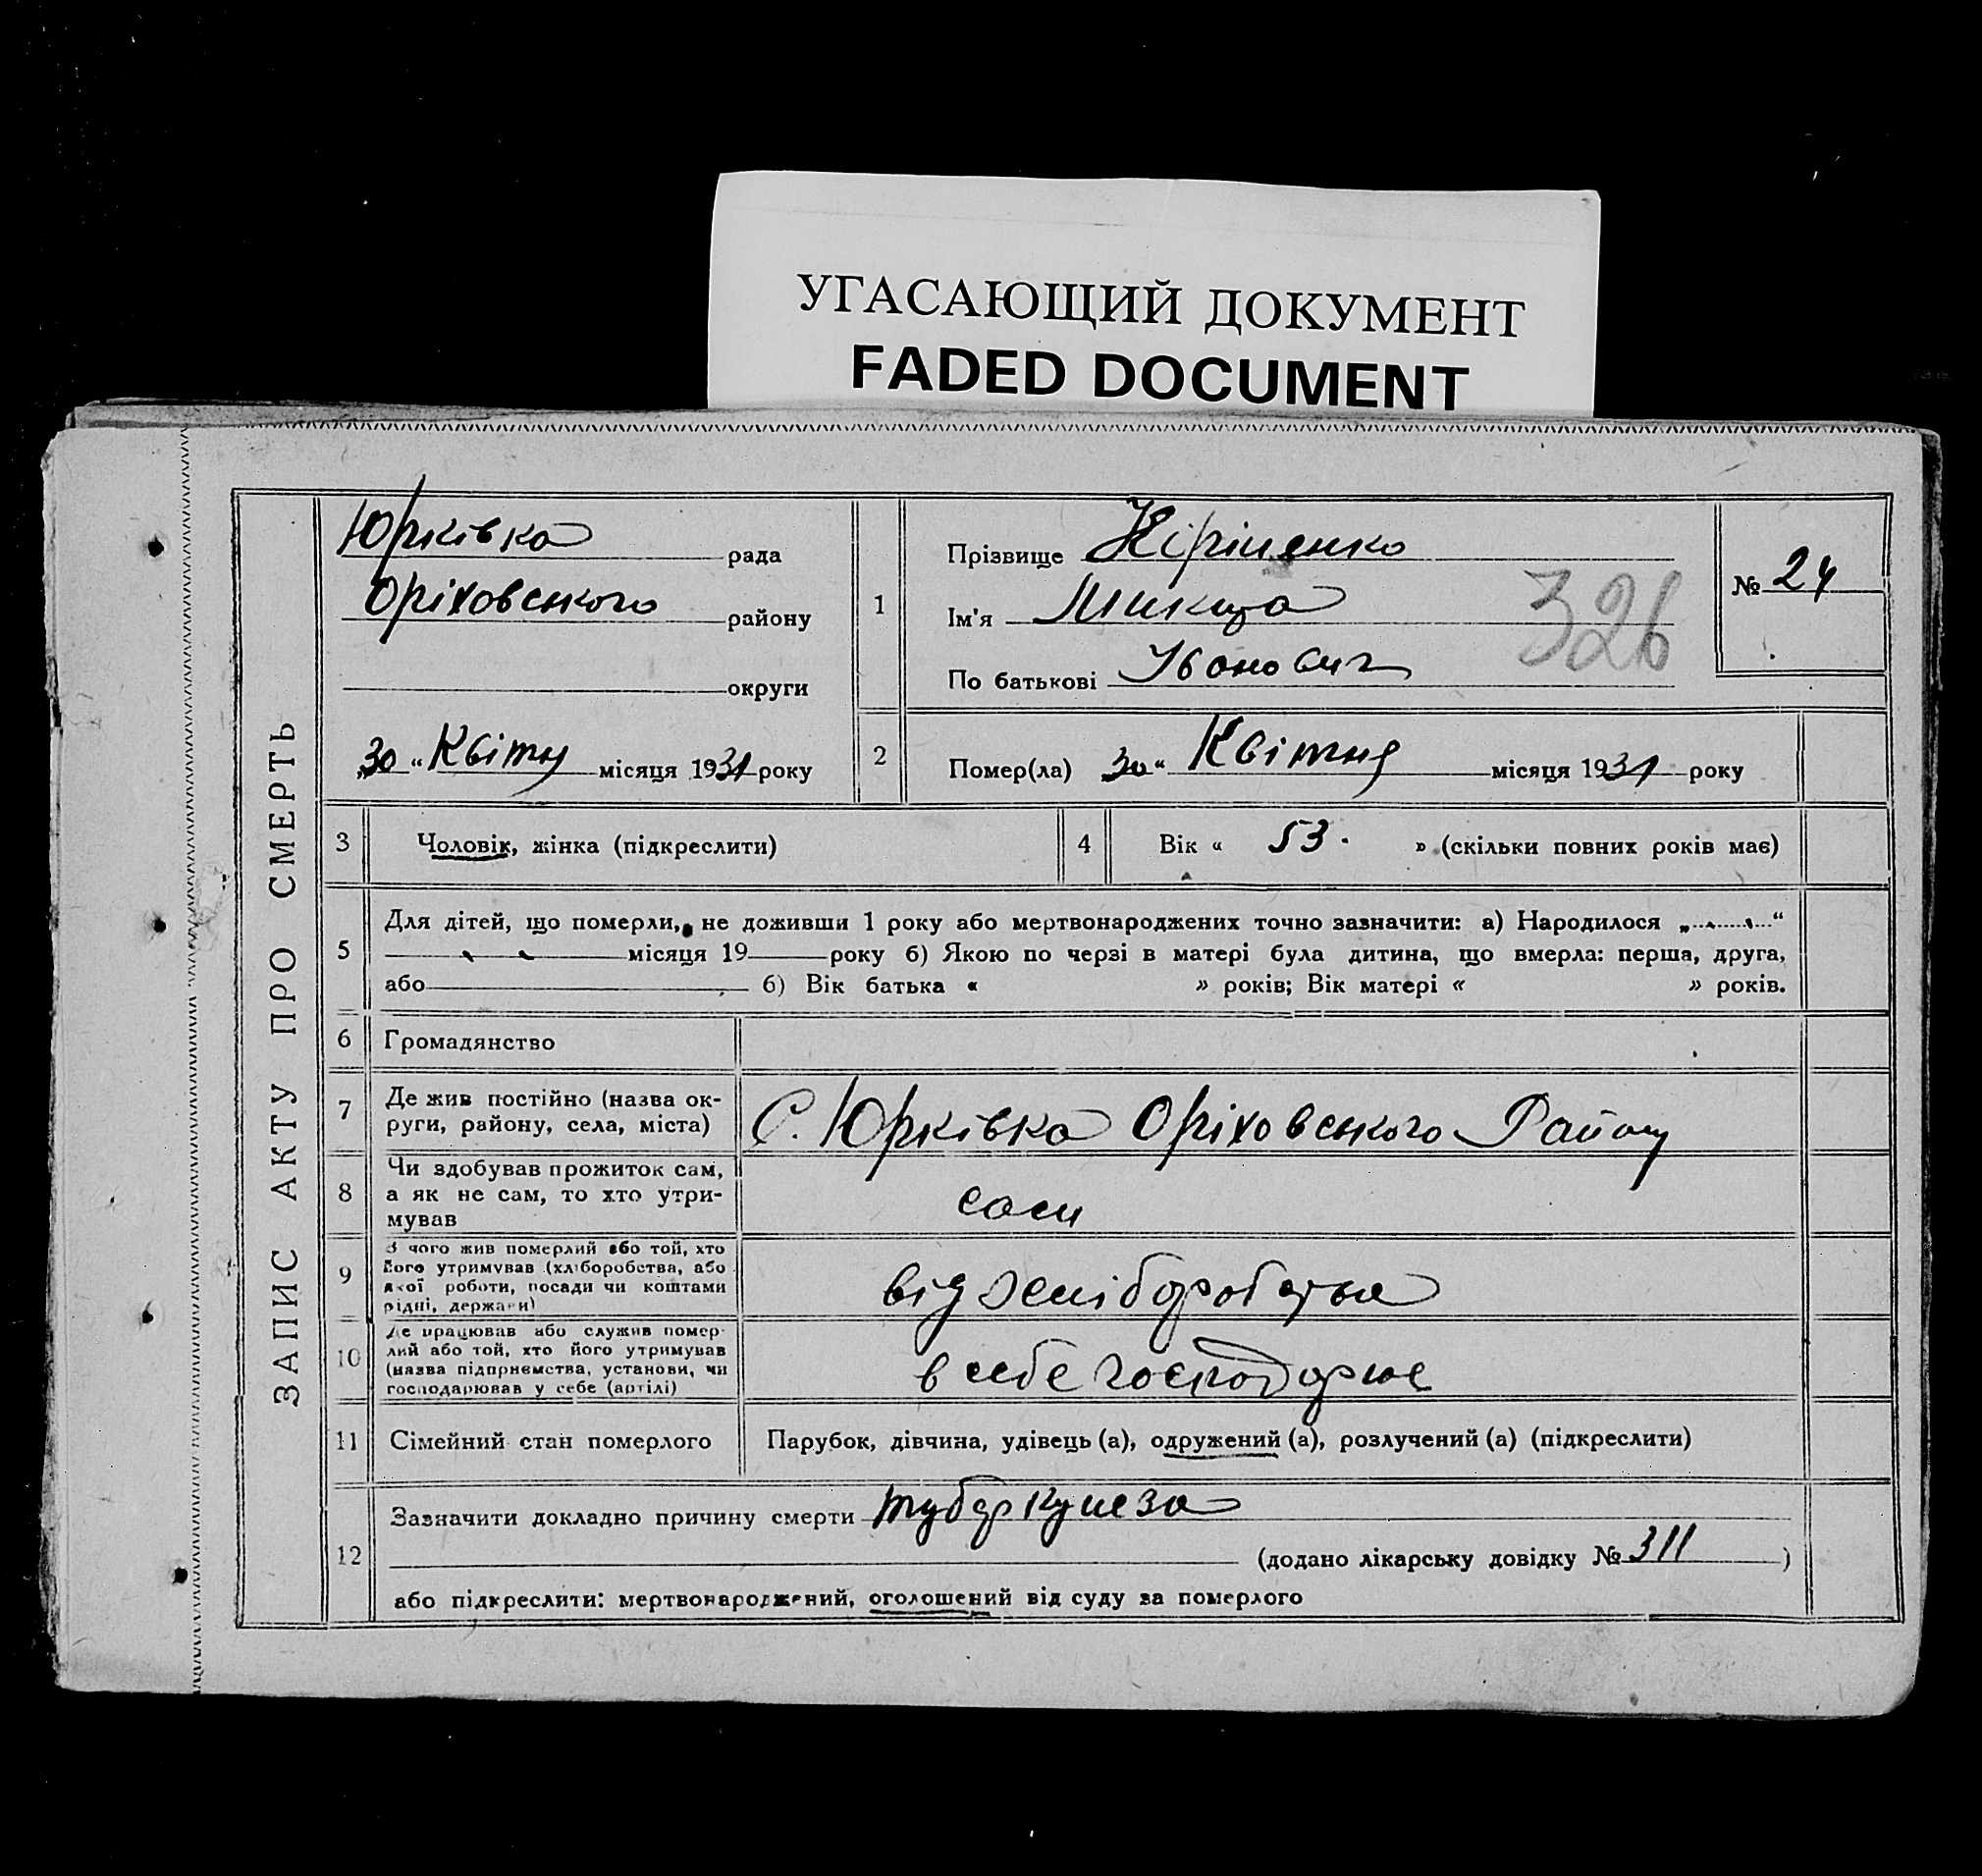 УГАСАЮЩИЙ ДОКУМЕНТ
FADED DOCUMENT
ЗАПИС АКТУ ПРО СМЕРТЬ
Юрківка рада
Оріховського району
округи
„30“ Квітня місяця 1931 року
1
Прізвище Кіріченко
Ім'я Микита
По батькові Іванович
326
№ 24
2
Помер(ла) 30“ Квітня місяця 1931 року
3 Чоловік, жінка (підкреслити)
4 Вік « 53. » (скільки повних років має)
5 Для дітей, що померли, не доживши 1 року або мертвонароджених точно зазначити: а) Народилося „ “
місяця 19 року б) Якою по черзі в матері була дитина, що вмерла: перша, друга,
або б) Вік батька « » років; Вік матері « » років.
6 Громадянство
7 Де жив постійно (назва ок-
руги, району, села, міста)
С. Юрківка Оріховського Району
8 Чи здобував прожиток сам,
а як не сам, то хто утри-
мував
сам
9 З чого жив померлий або той, хто
його утримував (хліборобства, або
якої роботи, посади чи коштами
рідні, держави)
від хліборобства
10 Де працював або служив помер-
лий або той, хто його утримував
(назва підприємства, установи, чи
господарював у себе (артілі)
в себе господарює
11 Сімейний стан померлого
Парубок, дівчина, удівець (а), одружений (а), розлучений (а) (підкреслити)
12 Зазначити докладно причину смерти туберкулеза
(додано лікарську довідку № 311 )
або підкреслити: мертвонароджений, оголошений від суду за померлого